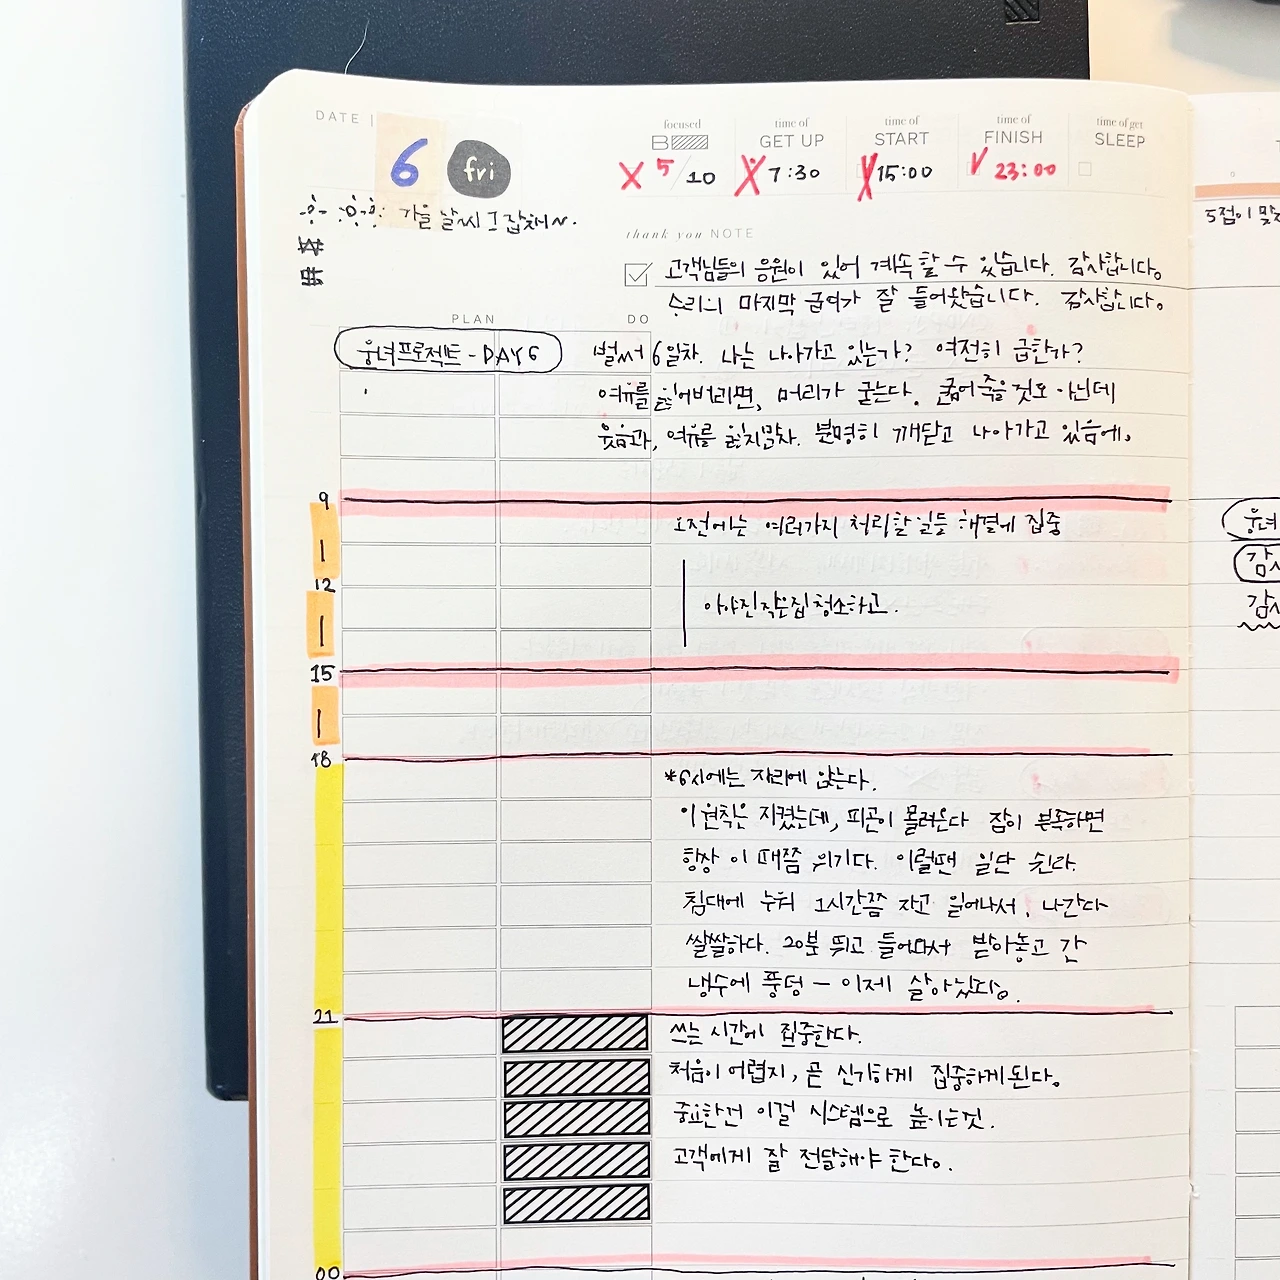 DATE |
6 fri
focused
B
5/10
time of
GET UP
7:30
time of
START
15:00
time of
FINISH
23:00
time of get
SLEEP
가을 날씨 그 잡채~.
thank you NOTE
고객님들의 응원이 있어 계속 할 수 있습니다. 감사합니다.
수리의 마지막 급여가 잘 들어왔습니다. 감사합니다.
PLAN
DO
웅녀프로젝트 - DAY 6
벌써 6일차. 나는 나아가고 있는가? 여전히 급한가?
여유를 잃어버리면, 머리가 굳는다. 굶어죽을 것도 아닌데
웃음과, 여유를 잃지말자. 분명히 깨닫고 나아가고 있음에.
9
오전에는 여러가지 처리할 일들 해결에 집중
12
아야진작은집 청소하고.
15
18
*6시에는 자리에 앉는다.
이 원칙은 지켰는데, 피곤이 몰려온다 잠이 부족하면
항상 이 때쯤 위기다. 이럴땐 일단 쉰다.
침대에 누워 1시간쯤 자고 일어나서, 나간다
쌀쌀하다. 20분 뛰고 들어와서 받아놓고 간
냉수에 풍덩 – 이제 살아났다.
21
쓰는 시간에 집중한다.
처음이 어렵지, 곧 신기하게 집중하게된다.
중요한건 이걸 시스템으로 높이는것.
고객에게 잘 전달해야 한다.
00
5점이 맞
웅녀
감사
감사